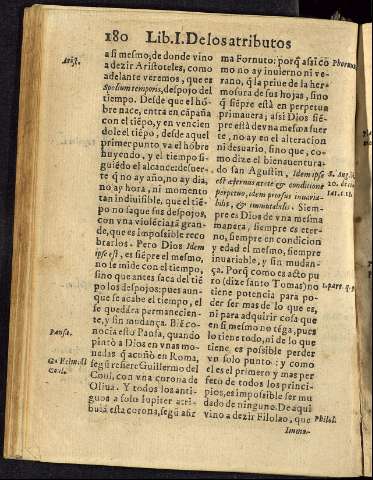 180 Lib. I. De los atributos
a si mesmo; de donde vino
a dezir Aristoteles, como
adelante veremos, que es
Spolium temporis, despojo del
tiempo. Desde que el hõ-
bre nace, entra en cãpaña
con el tiẽpo, y en vencien
dole el tiẽpo, desde aquel
primer punto va el hõbre
huyendo, y el tiempo si-
guiẽdo el alcance: de suer-
te q̃ no ay año, no ay dia,
no ay hora, ni momento
tan indiuisible, que el tiẽ-
po no saque sus despojos,
con vna violẽcia tã gran-
de, que es impossible reco
brarlos. Pero Dios Idem
ipse est, es siẽpre el mesmo,
no se mide con el tiempo,
sino que antes saca del tiẽ
po los despojos: pues aun-
que se acabe el tiempo, el
se quedara permanecien-
te, y sin mudança. Biẽ co-
nocia esto Pausa, quando
pintò a Dios en vnas mo-
nedas q̃ acuñò en Roma,
segũ refiere Guillermo del
Coul, con vna corona de
Oliua. Y todos los anti-
guos a solo Iupiter atri-
buìã esta corona, segũ afir
Arist.
Pausa.
ma Fornuto: porq̃ assi co
mo no ay inuierno ni ve-
rano, q̃ la priue de la her-
mosura de sus hojas, sino
q̃ siẽpre està en perpetua
primauera; assi Dios siẽ-
pre està de vna mesma suer
te, no ay en el alteracion
ni desuario, sino que, co-
mo dize el bienauentura-
do san Agustin, Idem ipse
est æternus mente & conditione
perpetuus, idem prorsus inuaria-
bilis, & immutabilis. Siem-
pre es Dios de vna mesma
manera, siempre es eter-
no, siempre en condicion
y edad el mesmo, siempre
inuariable, y sin mudan-
ça. Porq̃ como es acto pu
ro (dize santo Tomas) no
tiene potencia para po-
der ser mas de lo que es,
ni para adquirir cosa que
en si mesmo no tẽga, pues
lo tiene todo, ni de lo que
tiene es possible perder
vn solo punto: y como
el es el primero y mas per
feto de todos los princi-
pios, es impossible ser mu
dado de ninguno. De aqui
vino a dezir Filolao, que
Philol.